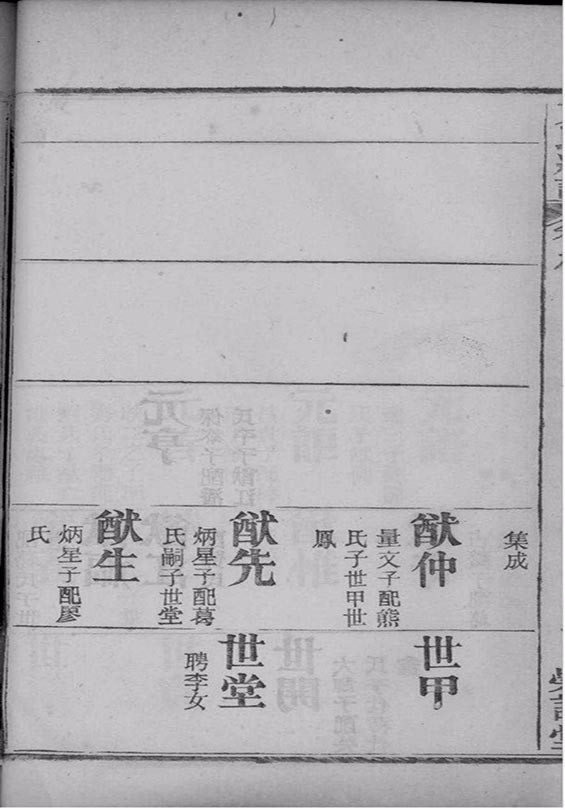 集成
猷仲
量文子配熊
氏子世甲世
鳳
猷先
炳星子配葛
氏嗣子世堂
猷生
炳星子配廖
氏
世甲
世堂
聘李女